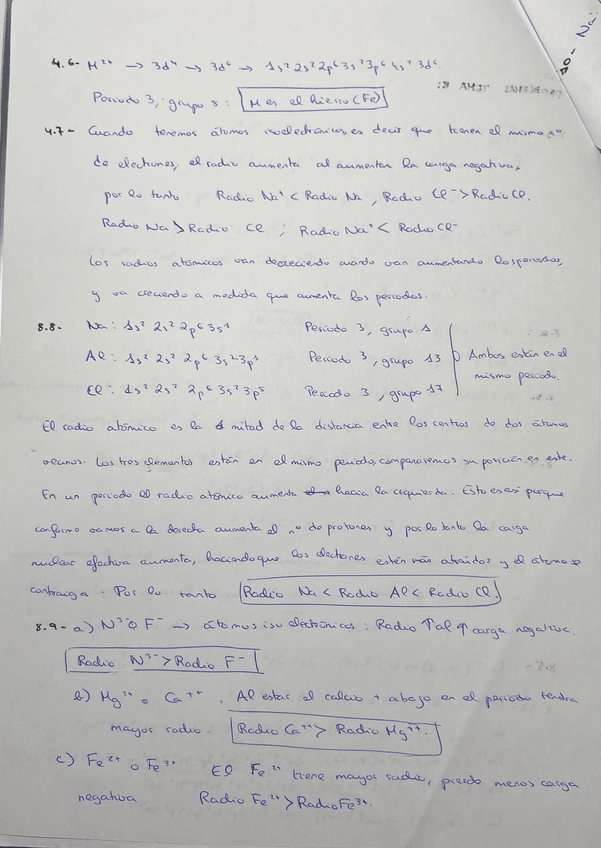 10- Na:
4.6- M²⁺ → 3d⁴ → 3d⁶ → 1s² 2s² 2p⁶ 3s² 3p⁶ 4s² 3d⁶.
Periodo 3, grupo 8: M es el hierro (Fe)
4.7- Cuando tenemos átomos isoelectrónicos, es decir que tienen el mismo nº
de electrones, el radio aumenta al aumentar la carga negativa,
por lo tanto Radio Na⁺ < Radio Na, Radio Cl⁻ > Radio Cl.
Radio Na > Radio Cl ; Radio Na⁺ < Radio Cl⁻
Los radios atómicos van decreciendo cuando van aumentando los periodos,
y va creciendo a medida que aumenta los periodos.
8.8- Na: 1s² 2s² 2p⁶ 3s¹ Periodo 3, grupo 1
Al: 1s² 2s² 2p⁶ 3s² 3p¹ Periodo 3, grupo 13 Ambos están en el
Cl: 1s² 2s² 2p⁶ 3s² 3p⁵ Periodo 3, grupo 17 mismo periodo.
El radio atómico es la mitad de la distancia entre los centros de dos átomos
vecinos. Los tres elementos están en el mismo periodo, compararemos su posición en este.
En un periodo el radio atómico aumenta hacia la izquierda. Esto es así porque
conforme vamos a la derecha aumenta el nº de protones y por lo tanto la carga
nuclear efectiva aumenta, haciendo que los electrones estén más atraídos y el átomo se
contraiga. Por lo tanto Radio Na < Radio Al < Radio Cl.
8.9- a) N³⁻ o F⁻ → átomos isoelectrónicos: Radio ↑ al ↑ carga negativa.
Radio N³⁻ > Radio F⁻
b) Mg²⁺ o Ca⁺⁺. Al estar el calcio + abajo en el periodo tendra
mayor radio. Radio Ca⁺⁺ > Radio Mg⁺⁺.
c) Fe²⁺ o Fe³⁺ El Fe²⁺ tiene mayor radio, pierde menos carga
negativa Radio Fe²⁺ > Radio Fe³⁺.